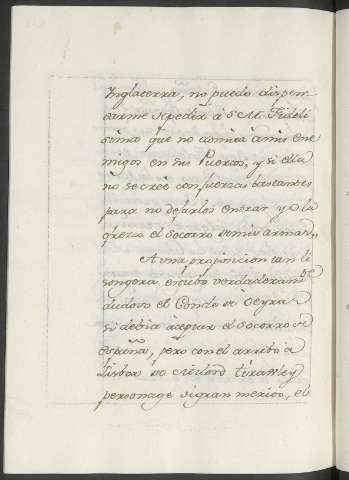 Inglaterra, no puedo dispen
sarme de pedir á S. M. Fideli
sima que no admita á mis ene-
migos en sus Puertos, y si ella
no se cree con fuerzas bastantes
para no dejarlos entrar yo la
ofrezco el socorro de mis armas,,
A una proposicion tan li
songera estubo verdaderam.te
dudoso el Conde de Oeyras
si debia aceptar el socorro de
españa, pero con el arribo á
Lisboa de Milord Tirawley
personage de gran merito, el